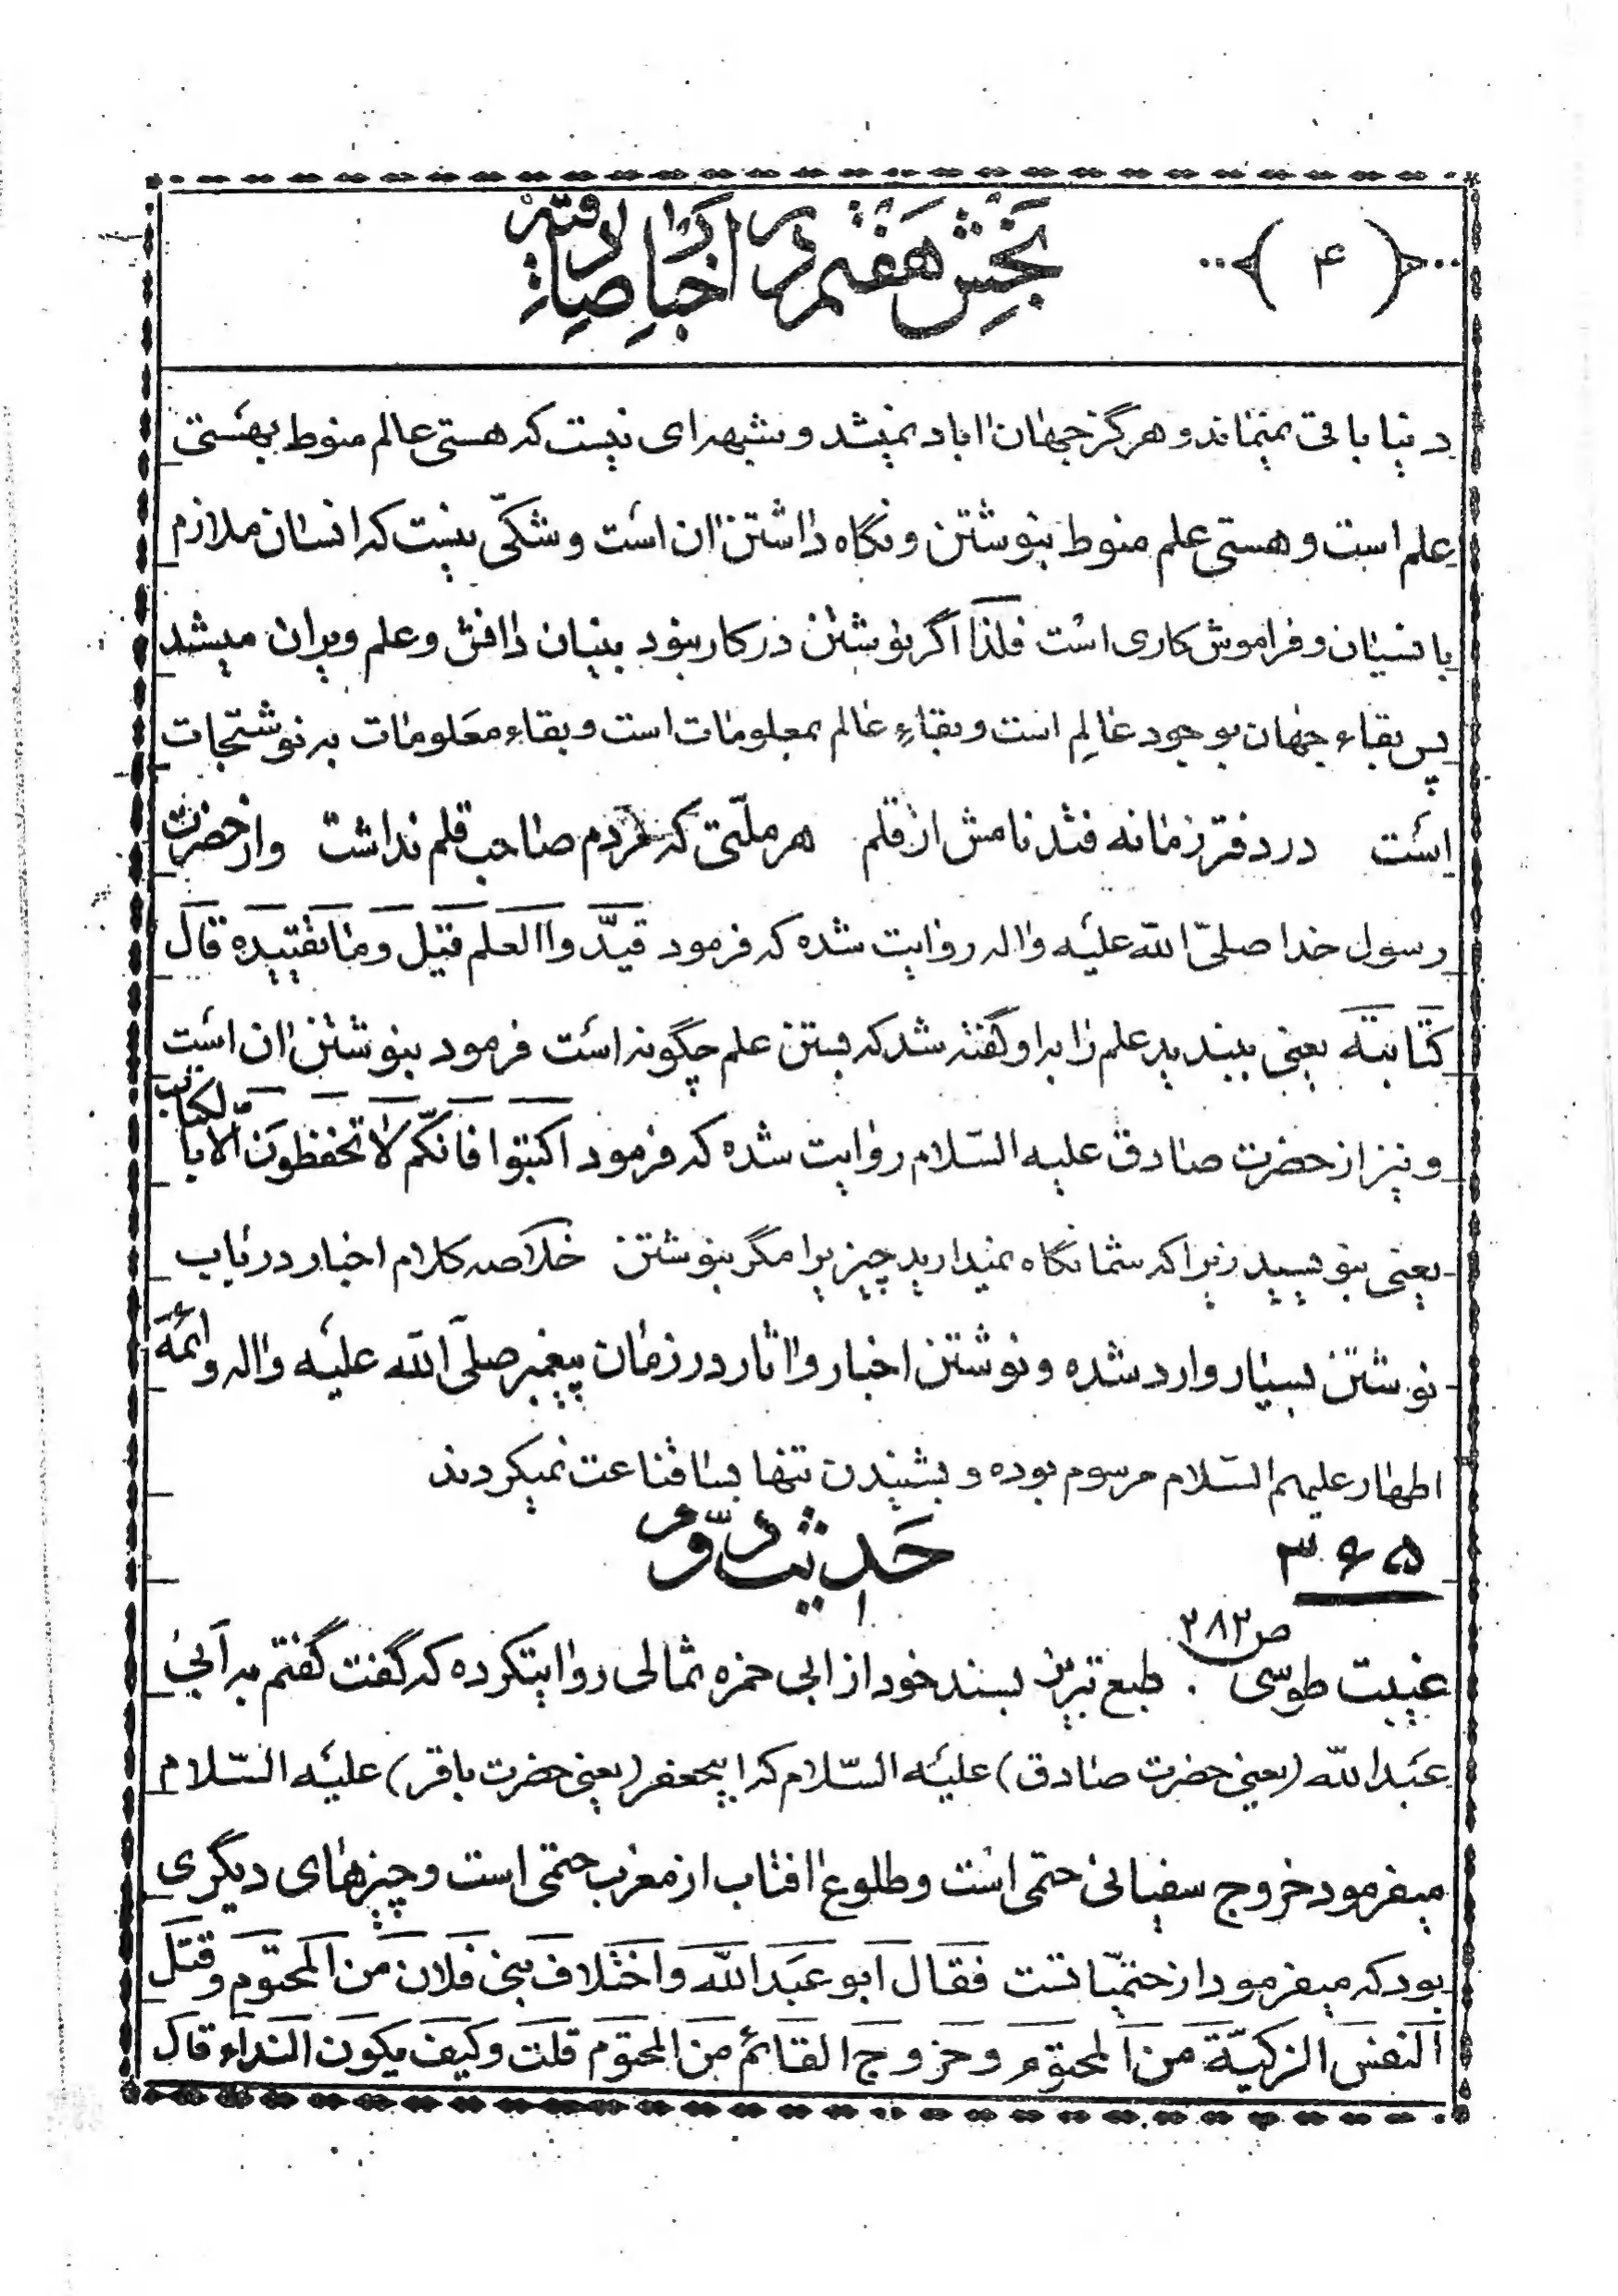 بخش هفتم در اخبار صادقیه
﴿ ۴ ﴾
دنیا باقی نمیماند و هرگز جهان اباد نمیشد و شبهه‌ای نیست که هستی عالم منوط بهستی
علم است و هستی علم منوط بنوشتن و نگاه داشتن ان است و شکّی نیست که انسان ملازم
با نسیان و فراموش کاری است فلذا اگر نوشتن در کار نبود بنیان دانش و علم ویران میشد
پس بقاء جهان بوجود عالِم است و بقاءِ عالم بمعلومات است و بقاء معلومات به نوشتجات
است در دفتر زمانه فتد نامش از قلم هر ملّتی که مردم صاحب قلم نداشت و از حضرت
رسول خدا صلّی اللّه علیه و اله روایت شده که فرمود قیّدوا العلم قیل و ما تقییده قال
کتابته یعنی ببندید علم را به او گفته شد که بستن علم چگونه است فرمود بنوشتن ان است
و نیز از حضرت صادق علیه السّلام روایت شده که فرمود اکتبوا فانّکم لا تحفظون الّا بالکتاب
یعنی بنویسید زیرا که شما نگاه نمیدارید چیزیرا مگر بنوشتن خلاصه کلام اخبار در باب
نوشتن بسیار وارد شده و نوشتن اخبار و اثار در زمان پیغمبر صلّی اللّه علیه و اله و ائمّه
اطهار علیهم السّلام مرسوم بوده و بشنیدن تنها بسا قناعت نمیکردند
۳۶۵ حدیث دوّم
غیبت طوسی ص ۲۸۲ طبع تبریز بسند خود از ابی حمزه ثمالی روایتکرده که گفت گفتم به ابی
عبد اللّه (یعنی حضرت صادق) علیه السّلام که ابیجعفر (یعنی حضرت باقر) علیه السّلام
میفرمود خروج سفیانی حتمی است و طلوع افتاب از مغرب حتمی است و چیزهای دیگری
بود که میفرمود از حتمیّاتست فقال ابو عبد اللّه و اختلاف بنی فلان من المحتوم و قتل
النفس الزکیّة من المحتوم و خروج القائم من المحتوم قلت و کیف یکون النداء قال